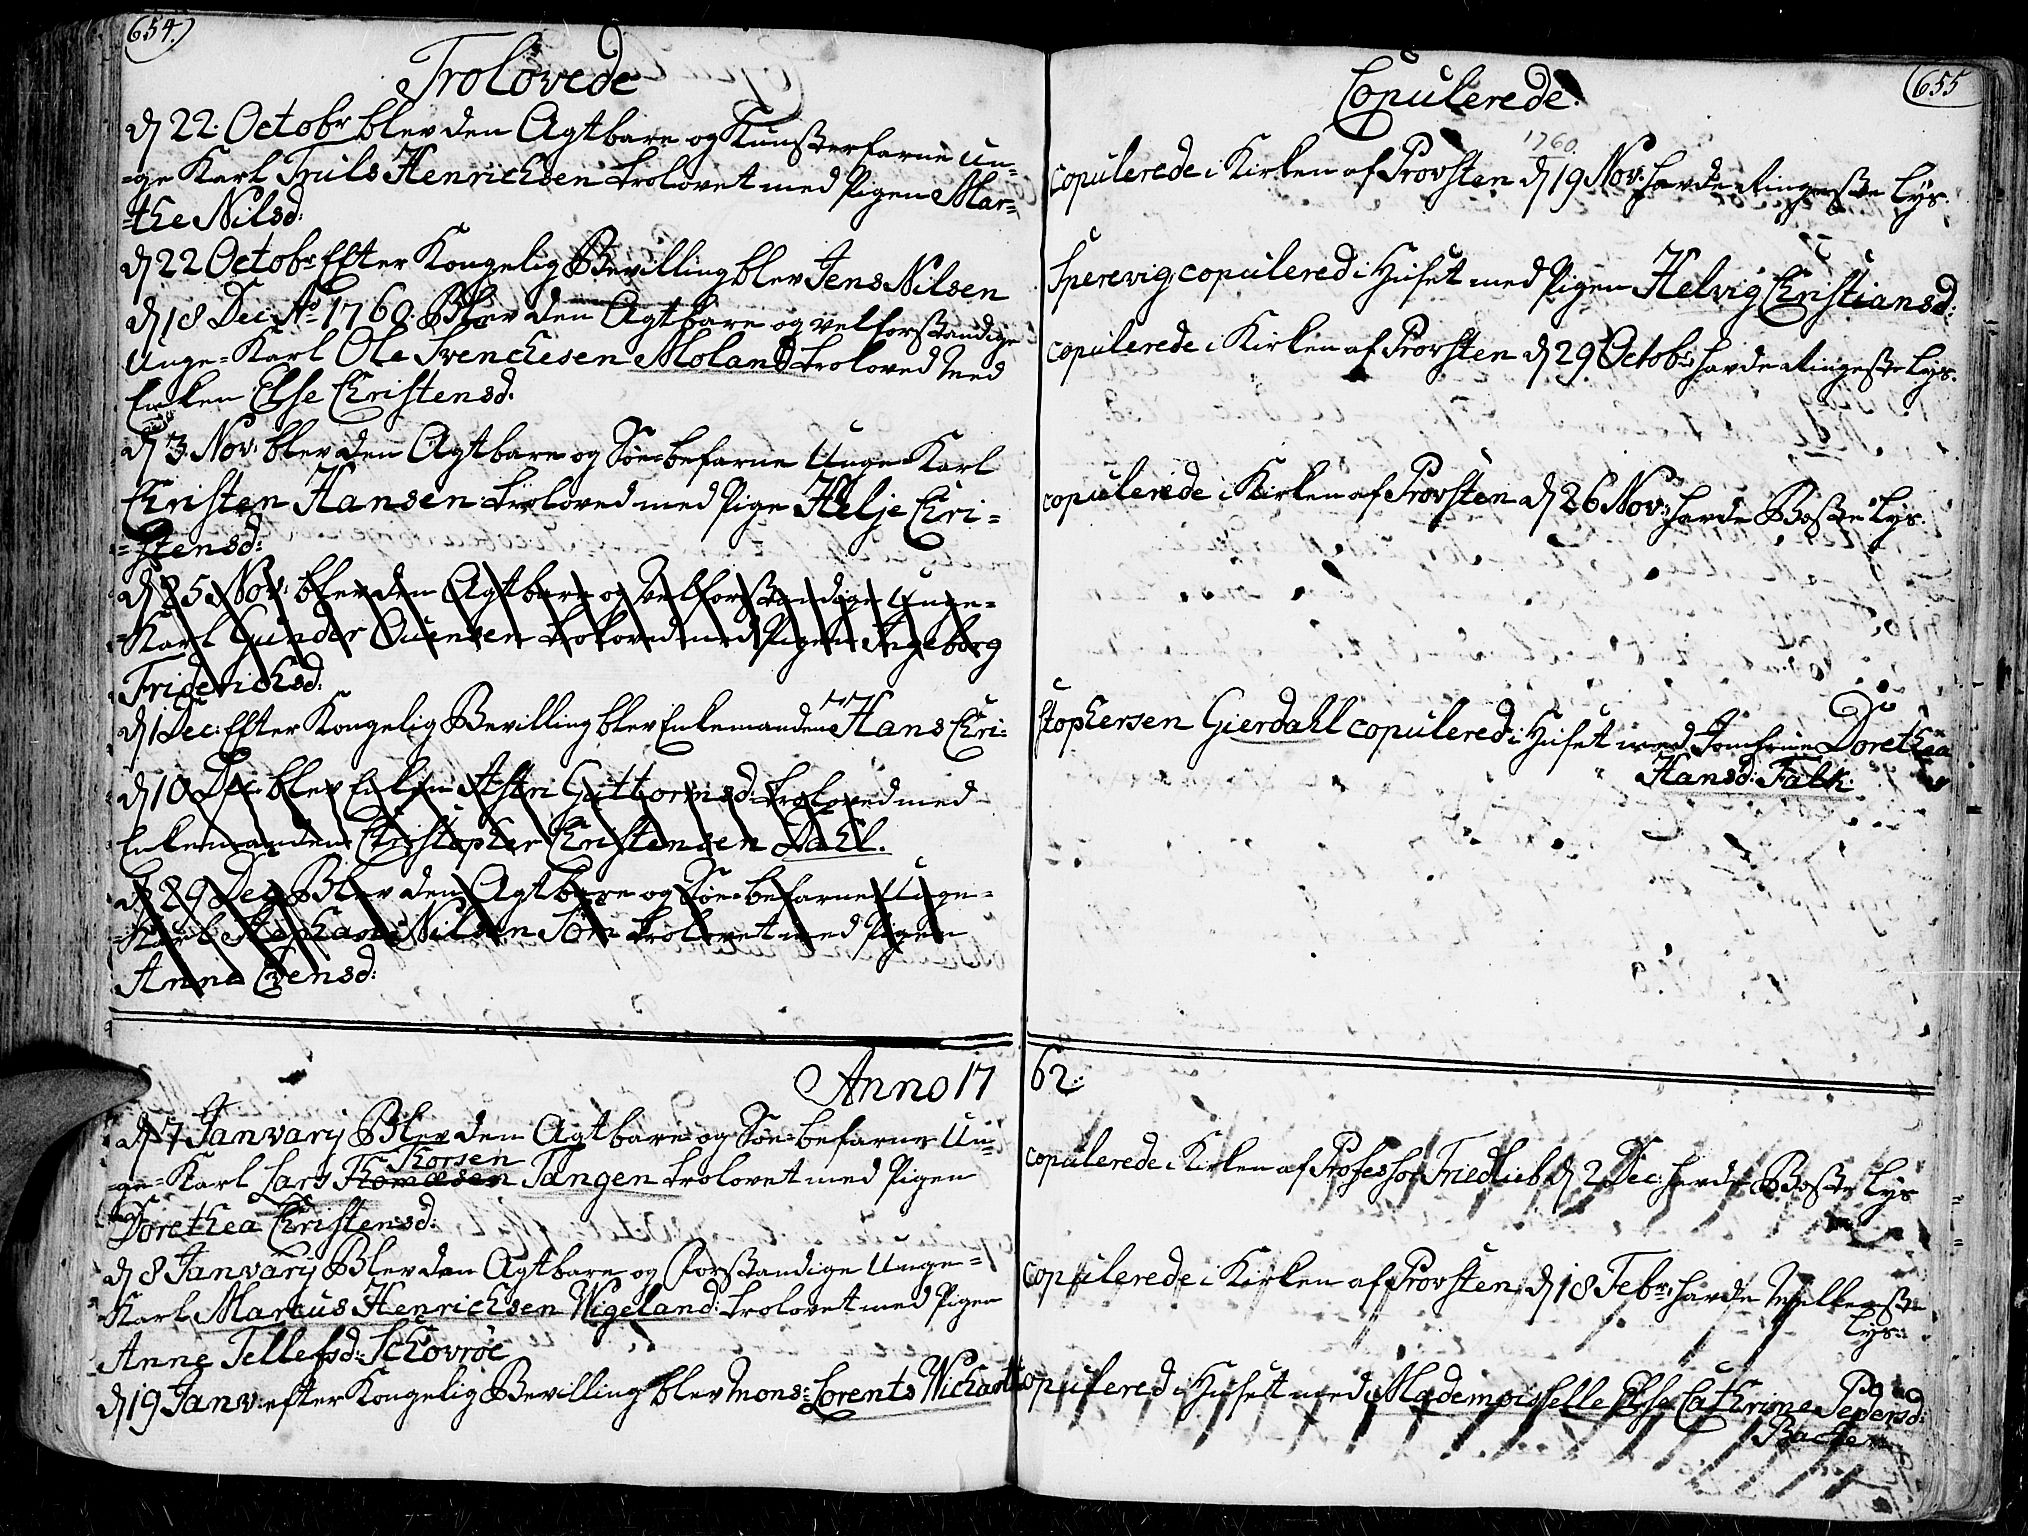 654.
Trolovede
d 22. Octobr blev den Agtbare og Kunsterfarne Un-
=ge Karl Truls Henrichsen trolovet med Pigen Mar=
=the Nilsd:
d 22 Octobr Efter Kongelig Bevilling blev Jens Nilsen
d 18 Dec: Ao 1760. Blev den Agtbare og velforstandige
Unge=Karl Ole Svenchesen Moland troloved med
Enken Else Christensd.
d 3. Nov: blev den Agtbare og Søe=befarne Unge=Karl
Christen Hansen troloved med Pige Helje Chri=
=stensd:
d 25 Nov: blev den Agtbare og Velforstandige Unge=
=Karl Gunder Ouensen troloved med Pigen Ingeborg
Friderichsd:
d 1 Dec: Efter Kongelig Bevilling blev Enkemanden Hans Chri=
d 10 Dec: blev Enken Astri Guttormsd: troloved med
Enkemanden Christopher Christensen Dahl.
d 29 Dec Blev den Agtbare og Søe=befarne Unge=
=Karl Stephan Nilsen Søm trolovet med Pigen
Anne Evensd:
Anno 17
d 7 Janvary Blev den Agtbare og Søe=befarne Un=
Thorsen
=ge=Karl Lars Thomæsen Tangen trolovet med Pigen
Dorethea Christensd:
d 8 Janvary Blev den Agtbare og Forstandige Unge=
Karl Marcus Henrichsen Wigeland: trolovet med Pigen
Anne Tellefsd: Schovrøe
d 19 Janv: efter Kongelig Bevilling blev Mons: Lorents Wichardt
655
Copulerede.
1760.
copulerede i Kirken af Provsten d 19 Nov: havde Ringeste Lys.
Sperevig copulered i Huset med Pigen Helvig Christiansd:
copulerede i Kirken af Provsten d 29 Octobr: havde Ringeste Lys.
copulerede i Kirken af Provsten d 26 Nov: havde Beste Lys.
stophersen Gierdahl copulered i Huset med Jomfrue Dorethea
Hansd: Falk.
62.
copulerede i Kirken af Professor Friedlieb d 2 Dec: havde Beste Lys
copulerede i Kirken af Provsten d 18 Febr: havde
Lys:
copulered i Huset med Mademoiselle Else Cathrine Pedersd:
Bache